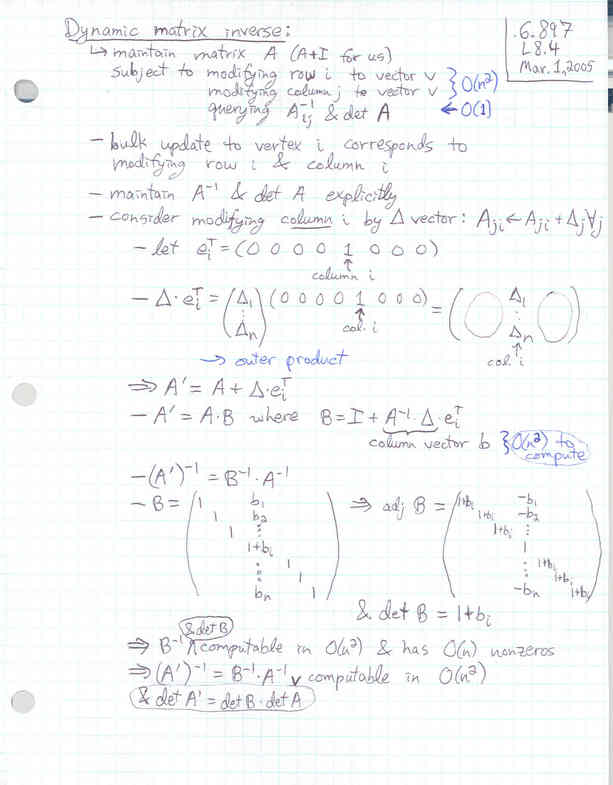 Dynamic matrix inverse:
6.897
L8.4
Mar. 1, 2005
↳ maintain matrix A (A+I for us)
subject to modifying row i to vector v
modifying column j to vector v } O(n²)
querying A⁻¹ᵢⱼ & det A ← O(1)
- bulk update to vertex i corresponds to
modifying row i & column i
- maintain A⁻¹ & det A explicitly
- consider modifying column i by Δ vector: Aⱼᵢ ← Aⱼᵢ + Δⱼ ∀j
- let eᵢᵀ = (0 0 0 0 1 0 0 0)
↑
column i
- Δ·eᵢᵀ = (Δ₁ ⋮ Δₙ) (0 0 0 0 1 0 0 0) = (0 Δ₁ ⋮ Δₙ 0)
↑ col. i ↑ col. i
→ outer product
⇒ A' = A + Δ·eᵢᵀ
- A' = A·B where B = I + A⁻¹·Δ·eᵢᵀ
column vector b } O(n²) to
compute
- (A')⁻¹ = B⁻¹·A⁻¹
- B = ( 1 b₁ ⇒ adj B = ( 1+bᵢ -b₁
1 b₂ 1+bᵢ -b₂
1 ⋮ 1+bᵢ ⋮
1+bᵢ 1
⋮ 1 ⋮ 1+bᵢ
1 1+bᵢ
bₙ 1 ) -bₙ 1+bᵢ )
& det B = 1+bᵢ
& det B
⇒ B⁻¹ ∧ computable in O(n²) & has O(n) nonzeros
⇒ (A')⁻¹ = B⁻¹·A⁻¹ ∨ computable in O(n²)
& det A' = det B · det A